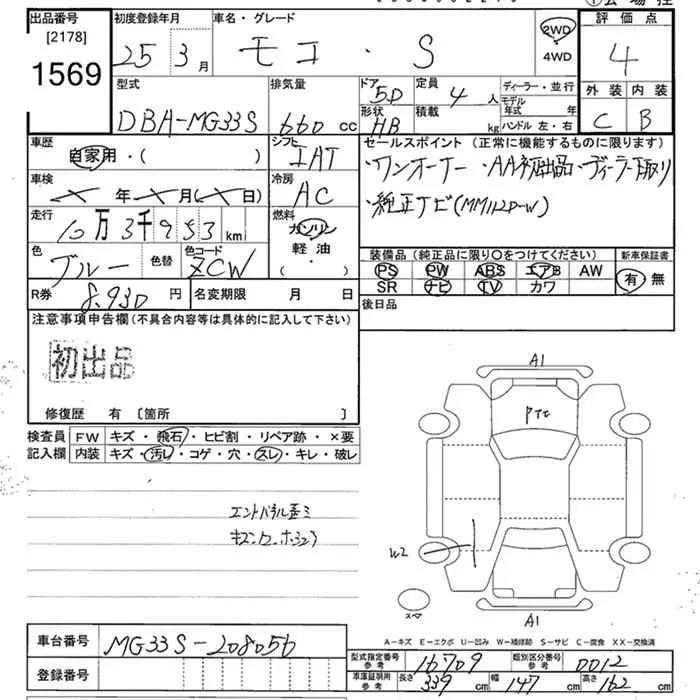 出品番号 初度登録年月 車名・グレード 2WD 評価点
[2178] 25 3月 モコ・S 4WD 4
1569 型式 排気量 ドア 5D 定員 4人 ディーラー・並行 外装 内装
DBA-MG33S 660cc 形状 HB 積載 kg モデル年式 年 C B
ハンドル 左・右
車歴 シフト セールスポイント (正常に機能するものに限ります)
自家用・( ) IAT ・ワンオーナー ・AA初出品・ディーラー下取り
車検 年 月( 日) 冷房 AC ・純正ナビ(MM112D-W)
走行 10万3千953km 燃料 ガソリン
軽油・( )
色 ブルー 色替 色コード ZCW 装備品 (純正品に限り〇をつけてください) 新車保証書
PS PW ABS エアB AW 有 無
R券 8,930円 名変期限 月 日 SR ナビ TV カワ
注意事項申告欄(不具合内容等は具体的に記入して下さい) 後日品
初出品
修復歴 有 [箇所 ]
検査員 FW キズ・飛石・ヒビ割・リペア跡・×要
記入欄 内装 キズ・汚レ・コゲ・穴・スレ・キレ・破レ
A1
W2
A1
スペア
A-キズ E-エクボ U-凹み W-補修跡 S-サビ C-腐食 XX-交換済
車台番号 MG33S-208056 型式指定番号 参考 16709 類別区分番号 参考 0012
登録番号 車庫証明用 参考 長さ 339cm 幅 147cm 高さ 162cm